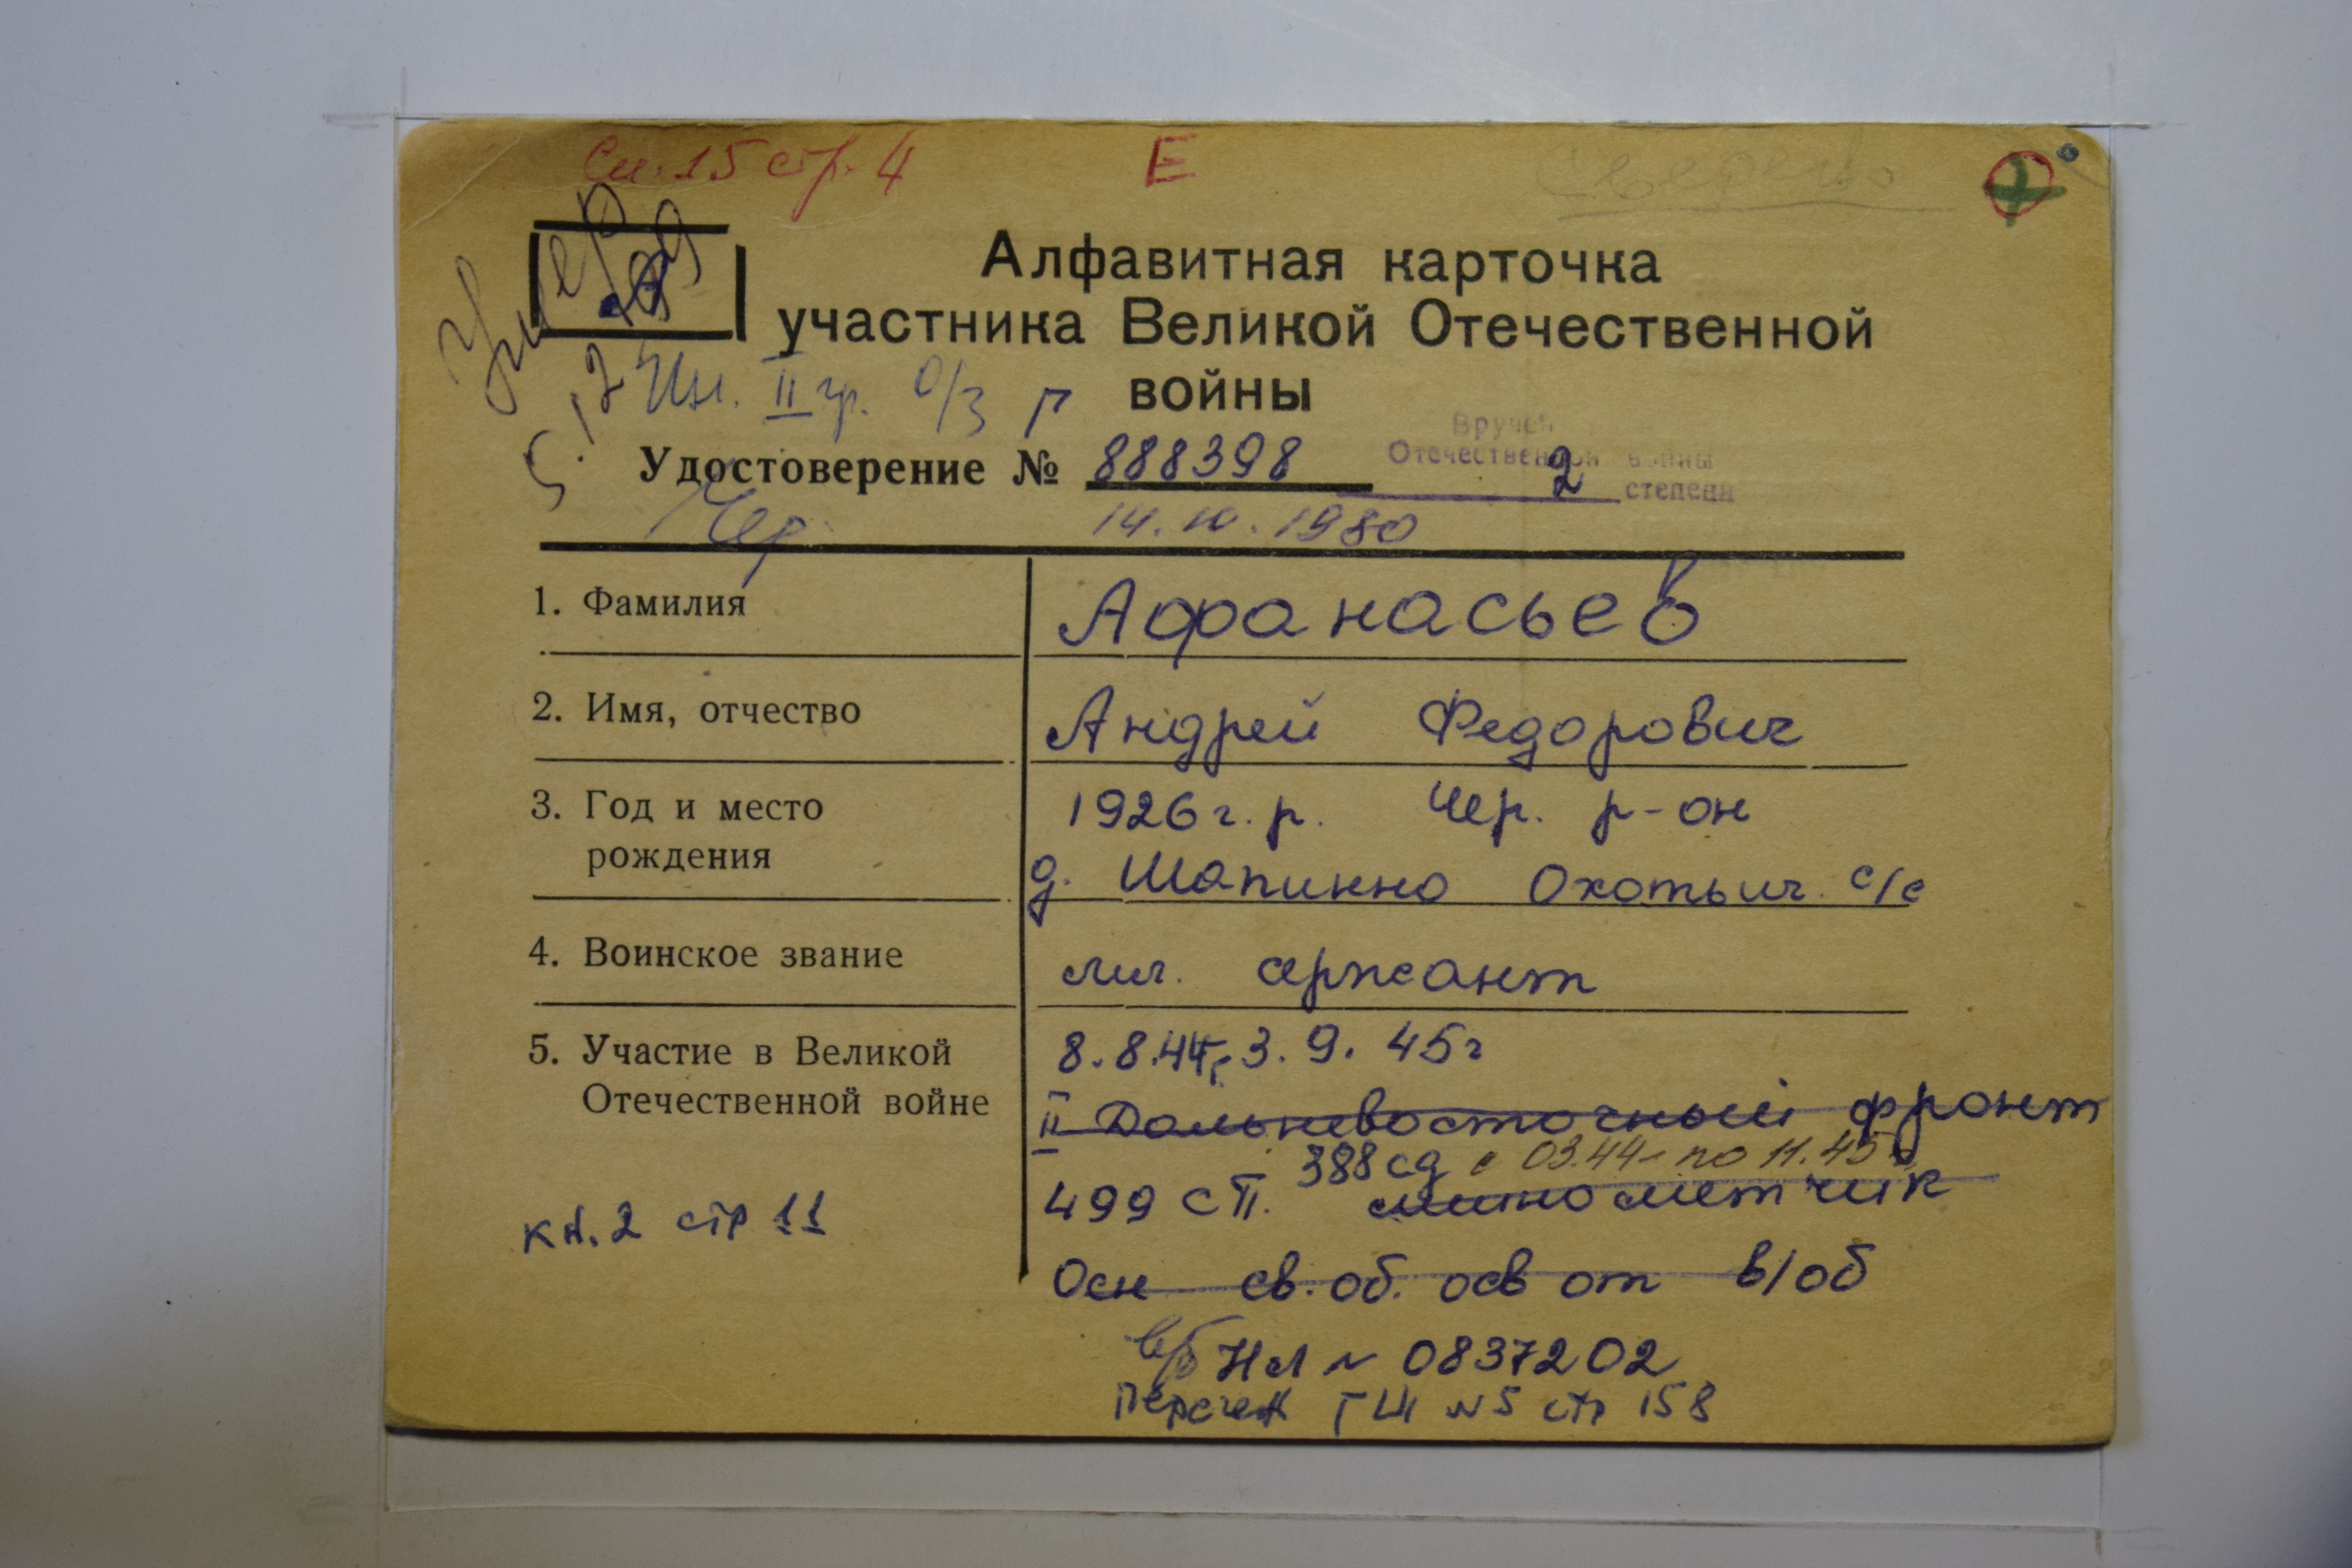 Сп. 15 стр. 4 Е
Умер
Алфавитная карточка
участника Великой Отечественной
войны
Ин. II гр. о/з Г
Вручен
Отечественной войны
2 степени
Удостоверение № 888398
Чер. 14.10.1980
1. Фамилия Афанасьев
2. Имя, отчество Андрей Федорович
3. Год и место 1926 г.р. Чер. р-он
рождения д. Шапинно Охотьич. с/с
4. Воинское звание мл. сержант
5. Участие в Великой 8.8.44г 3.9.45г
Отечественной войне II Дальневосточный фронт
388 сд с 03.44 по 11.45
499 СП. минометчик
кн. 2 стр 11
Осн св. об. осв от в/об
в/б НЛ № 0837202
Перечен ГШ №5 стр 158